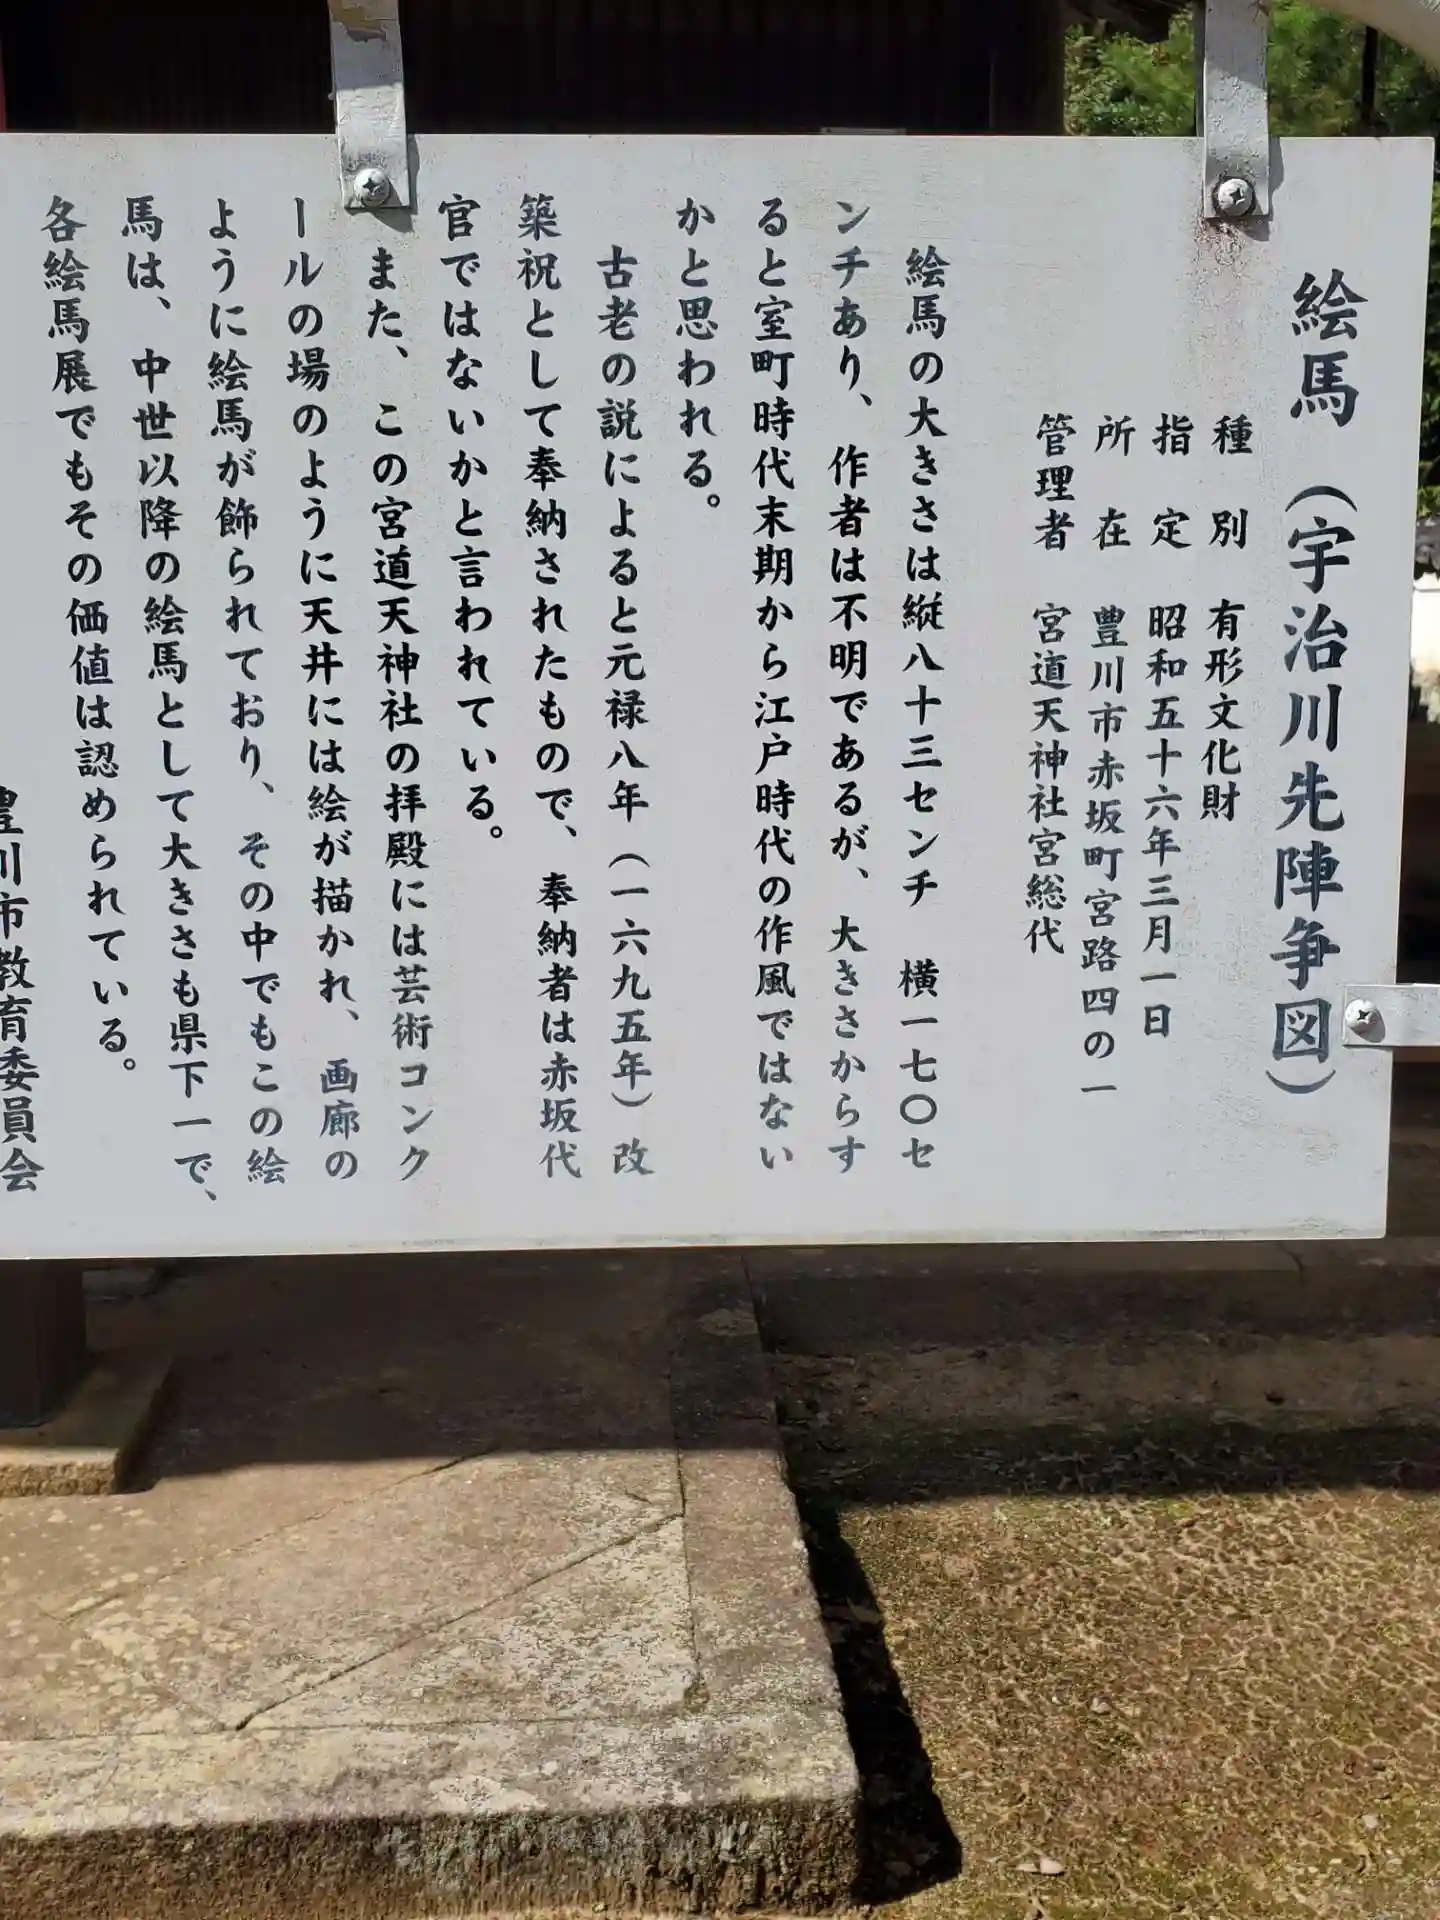 絵馬（宇治川先陣争図）
種別　有形文化財
指定　昭和五十六年三月一日
所在　豊川市赤坂町宮路四の一
管理者　宮道天神社宮総代
　絵馬の大きさは縦八十三センチ　横一七〇セ
ンチあり、作者は不明であるが、大きさからす
ると室町時代末期から江戸時代の作風ではない
かと思われる。
　古老の説によると元禄八年（一六九五年）改
築祝として奉納されたもので、奉納者は赤坂代
官ではないかと言われている。
　また、この宮道天神社の拝殿には芸術コンク
ールの場のように天井には絵が描かれ、画廊の
ように絵馬が飾られており、その中でもこの絵
馬は、中世以降の絵馬として大きさも県下一で、
各絵馬展でもその価値は認められている。
豊川市教育委員会